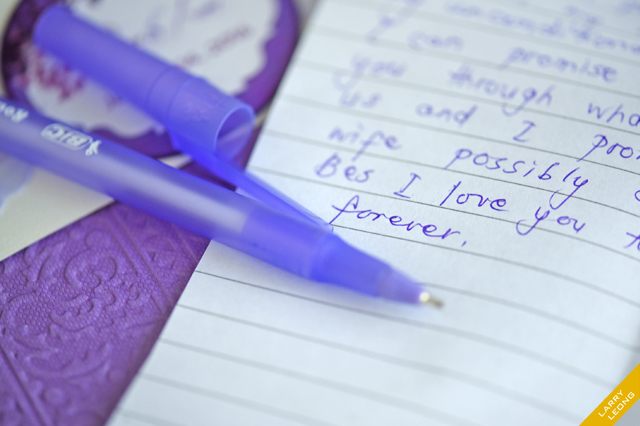 unconditional
I can promise
you through wha
us and I pro
wife possibly
Bes I love you
forever.
BIC
LARRY
LEONG